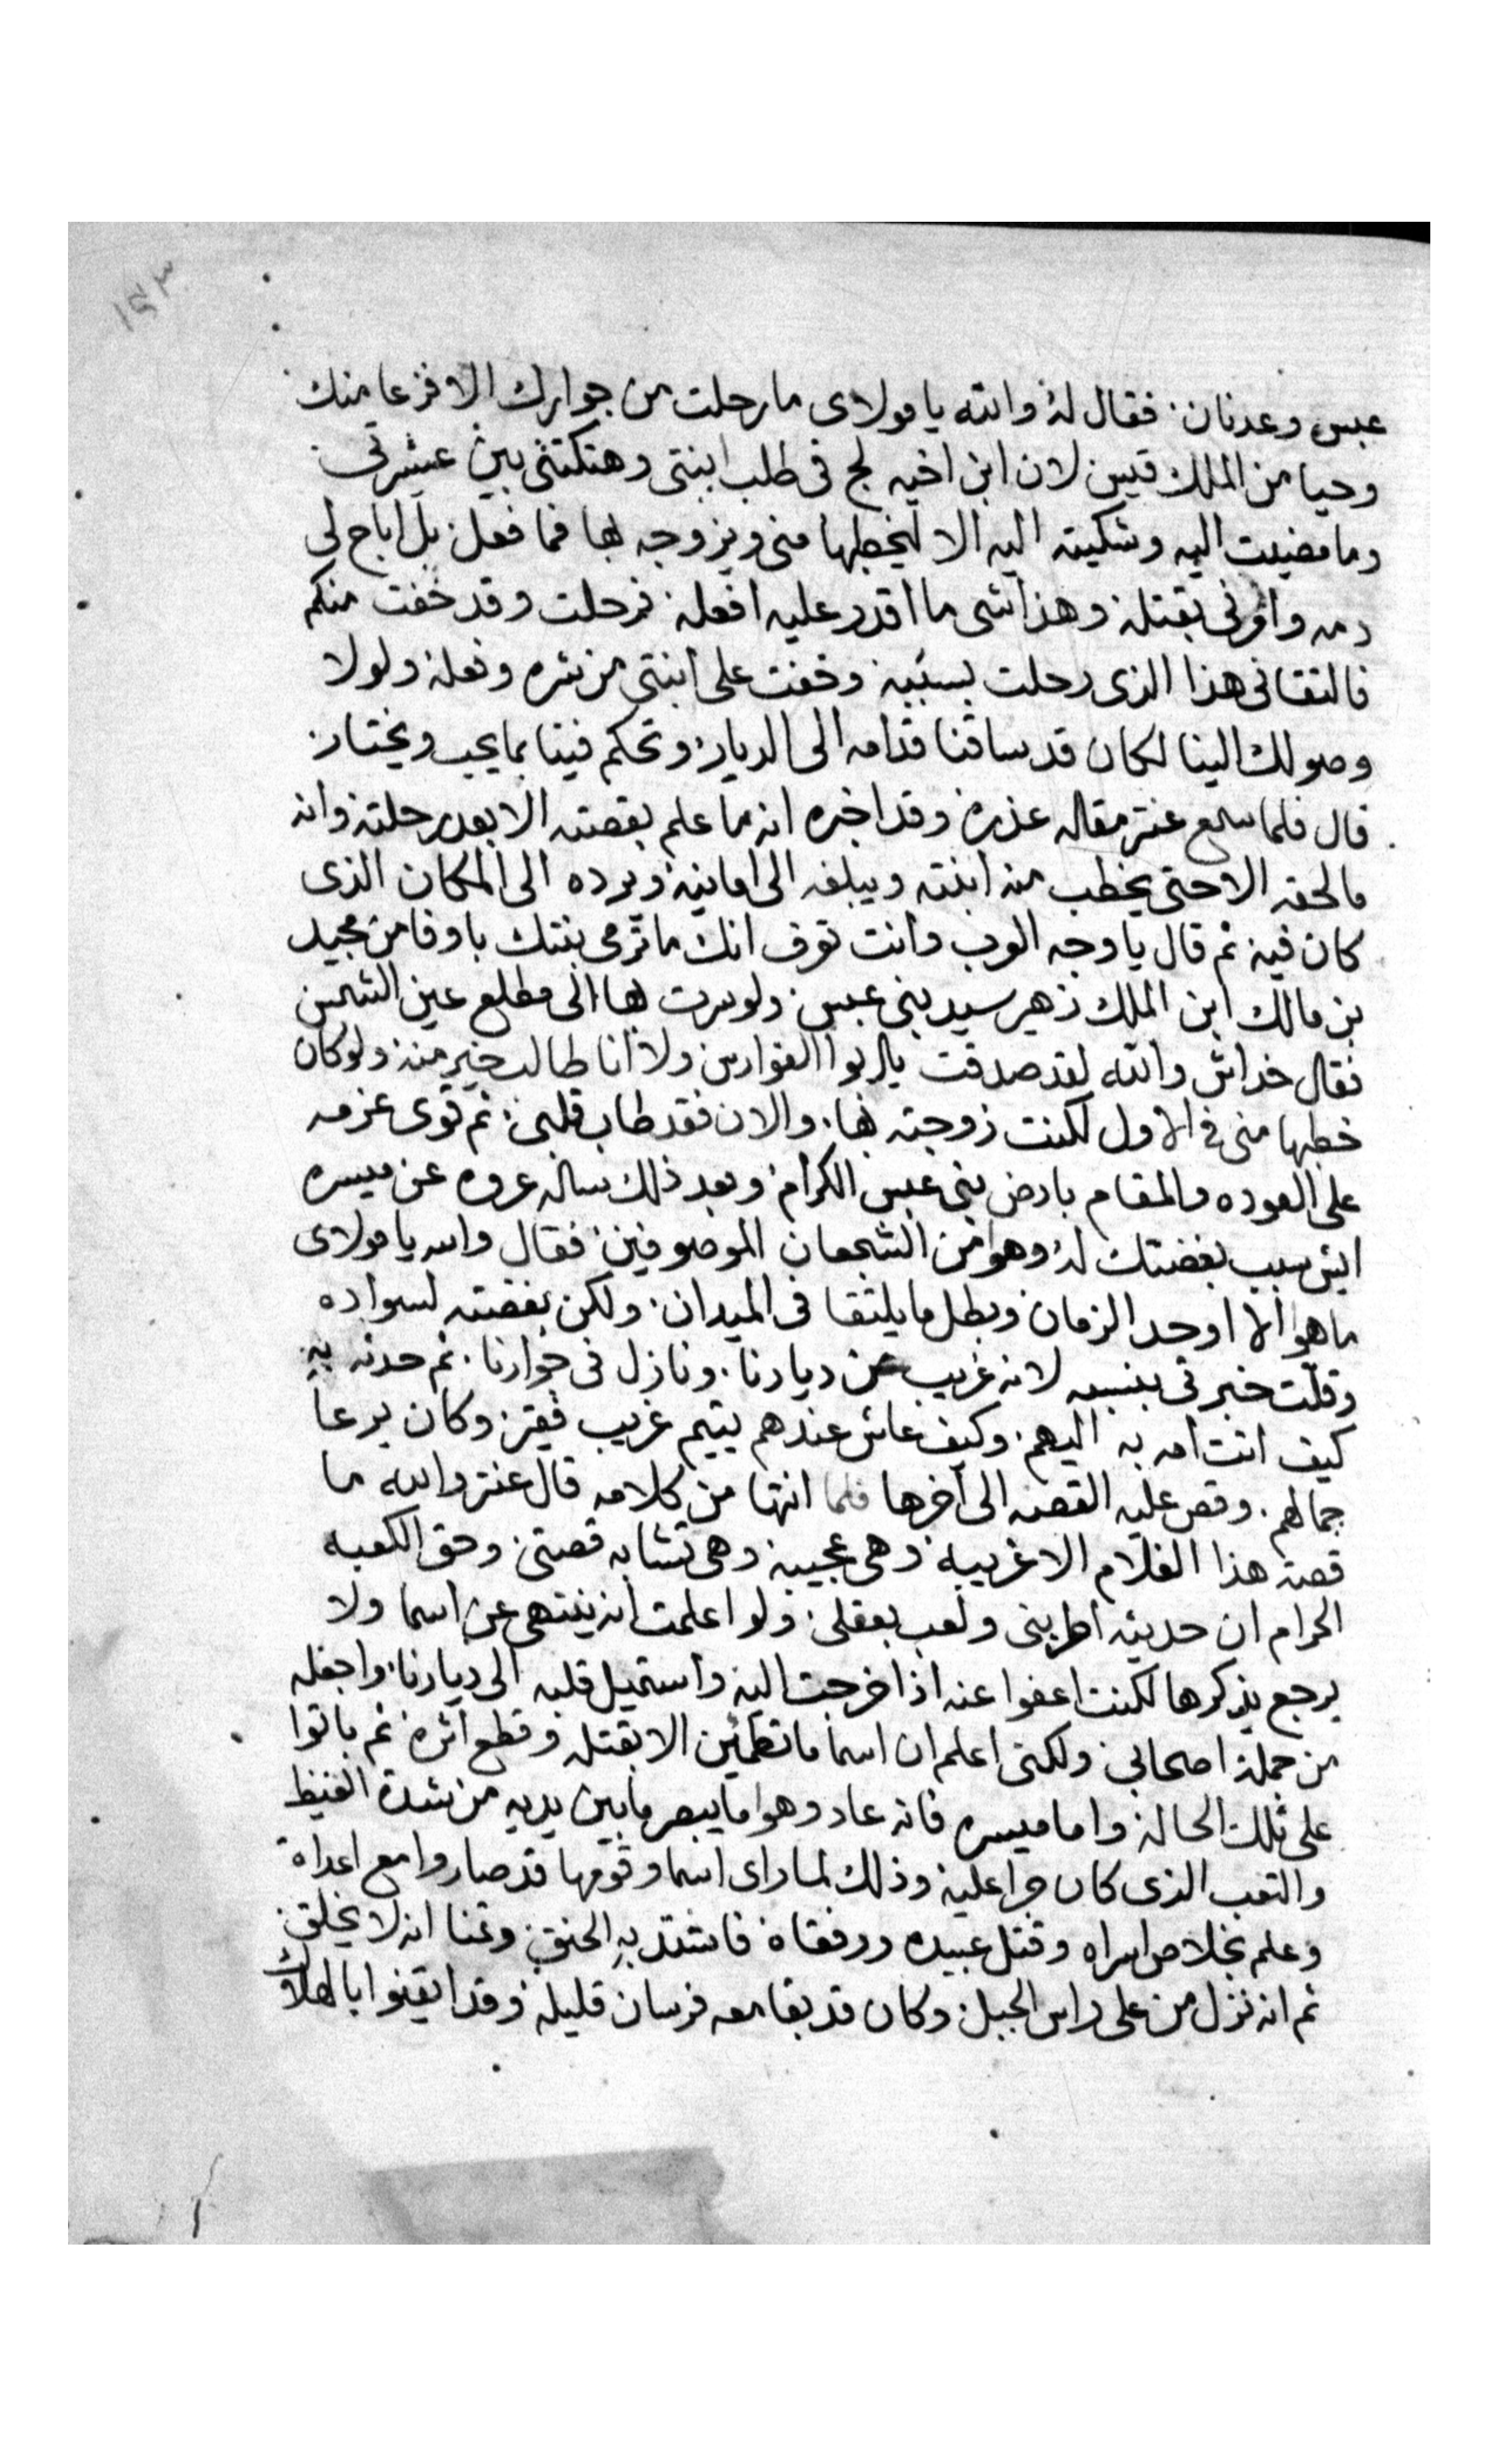 ١٤٣
عبس وعدنان. فقال له والله يا مولاى ما رحلت من جوارك الا فزعا منك
وحيا من الملك قيس لان ابن اخيه لج فى طلب ابنتى وهتكتنى بين عشيرتى
وما مضيت اليه وشكيته اليه الا ليخطبها منى ويزوجه بها فما فعل بل اباح لى
دمه وامرنى بقتله وهذا شى ما اقدر عليه افعله فرحلت وقد خفت منكم
فالتقانى هذا الذى رحلت بسببه وخفت على ابنتى من شره وفعله ولولا
وصولك الينا لكان قد ساقنا قدامه الى الديار وتحكم فينا بما يحب ويختار
قال فلما سمع عنتر مقاله عذره وقد اخبره انه ما علم بقصته الا بعد رحلته وانه
مالحقه الا حتى يخطب منه ابنته ويبلغه الى امانيه ويرده الى المكان الذى
كان فيه ثم قال يا وجه العرب وانت تعرف انك ما ترمى بنتك باوفا من مجيد
بن مالك ابن الملك زهير سيد بنى عبس ولو سرت بها الى مطلع عين الشمس
فقال خداش والله لقد صدقت يا ابوا الفوارس ولا انا طالب خير منه ولو كان
خطبها منى فى الاول لكنت زوجته بها. والان فقد طاب قلبى ثم قوى عزمه
على العوده والمقام بارض بنى عبس الكرام وبعد ذلك ساله عروه عن ميسره
ايش سبب بغضتك له وهوا من الشجعان الموصوفين فقال والله يا مولاى
ما هوا الا اوحد الزمان وبطل ما يلتقا فى الميدان ولكن بغضته لسواده
وقلت خبرتى بنسبه لانه غريب عن ديارنا. ونازل فى جوارنا. ثم حدثه به
كيف اتت امه به اليهم. وكيف عاش عندهم يتيم غريب فقير وكان يرعا
جمالهم. وقص عليه القصه الى اخرها فلما انتها من كلامه قال عنتر والله ما
قصة هذا الغلام الا غريبه وهى عجيبه وهى تشابه قصتى وحق الكعبه
الحرام ان حديثه اطربنى ولعب بعقلى ولو اعلمت انه ينتهى عن اسما ولا
يرجع يذكرها لكنت اعفوا عنه اذا خرجت اليه واستميل قلبه الى ديارنا. واجعله
من جملة اصحابى ولكنى اعلم ان اسما ما تطمين الا بقتله وقطع اثره ثم باتوا
على تلك الحاله واما ميسره فانه عاد وهوا ما يبصر ما بين يديه من شدة الغيظ
والتعب الذى كان جرا عليه وذلك لما راى اسما وقومها قد صاروا مع اعداه
وعلم بخلاص اسراه وقتل عبيده ورفقاه فاشتد به الحنق وتمنا انه لا يخلق
ثم انه نزل من على راس الجبل وكان قد بقا معه فرسان قليله وقد ايقنوا بالهلاك